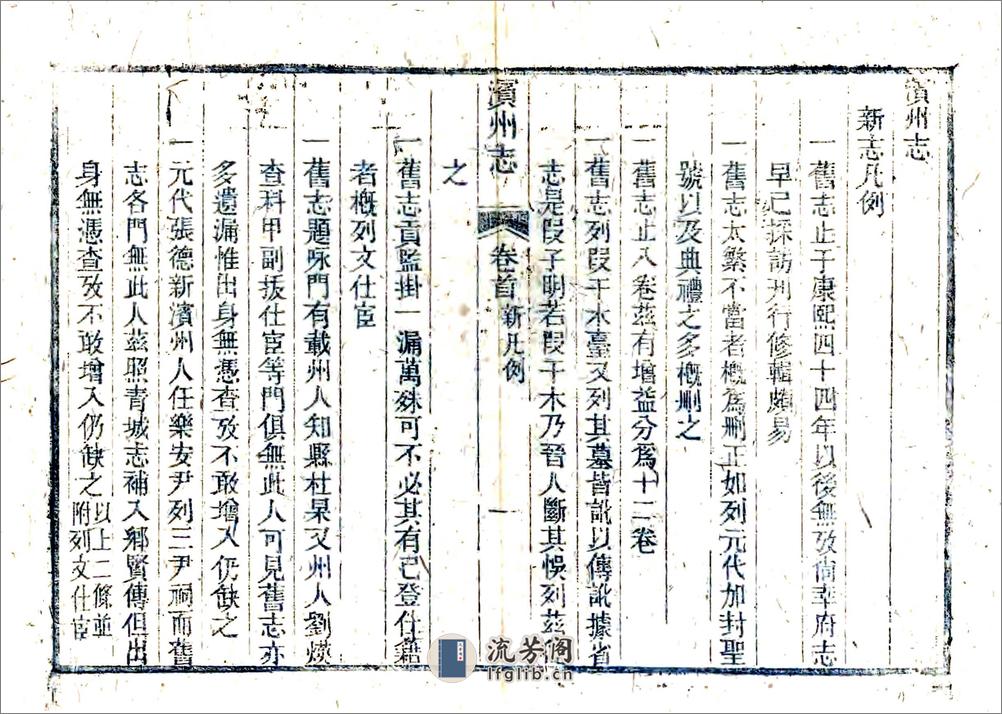 濱州志
新志凡例
一舊志止于康熙四十四年以後無攷尙幸府志
早已採訪刋行修輯頗易
一舊志太繁不當者槪爲刪正如列元代加封聖
號以及典禮之多槪刪之
一舊志止八卷茲有增益分爲十二卷
一舊志列叚干木臺又列其墓皆訛以傳訛據省
志是叚子明若叚干木乃晉人斷其悞列茲
濱州志
卷首
新凡例
一
之
一舊志貢監掛一漏萬殊可不必其有已登仕籍
者槪列文仕宦
一舊志題咏門有載州人知縣杜杲又州人劉煐
查科甲副拔仕宦等門俱無此人可見舊志亦
多遺漏惟出身無憑查攷不敢增入仍缺之
一元代張德新濱州人任樂安尹列三尹祠而舊
志各門無此人茲照青城志補入鄉賢傳但出
身無憑查攷不敢增入仍缺之以上二條並
附列文仕宦
流芳阁
lfglib.cn